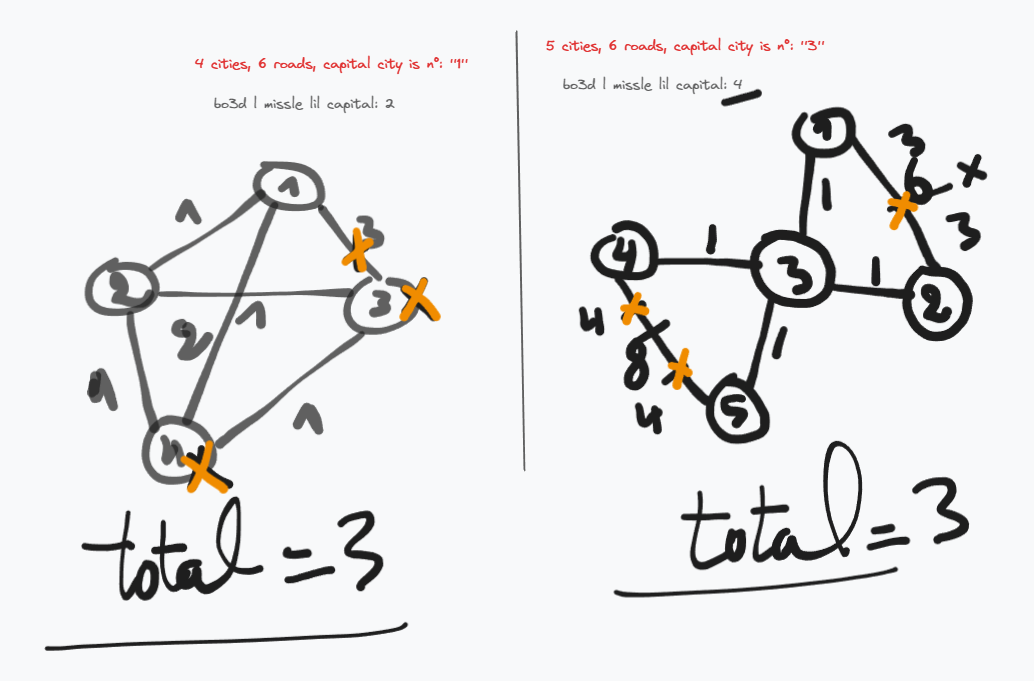 4 cities, 6 roads, capital city is n°: "1"
bo3d l missle lil capital: 2
1
1
3
2
3
2
1
1
4
1
total = 3
5 cities, 6 roads, capital city is n°: "3"
bo3d l missle lil capital: 4
1
3
6
x
1
3
4
1
3
1
2
4
8
1
4
5
total = 3